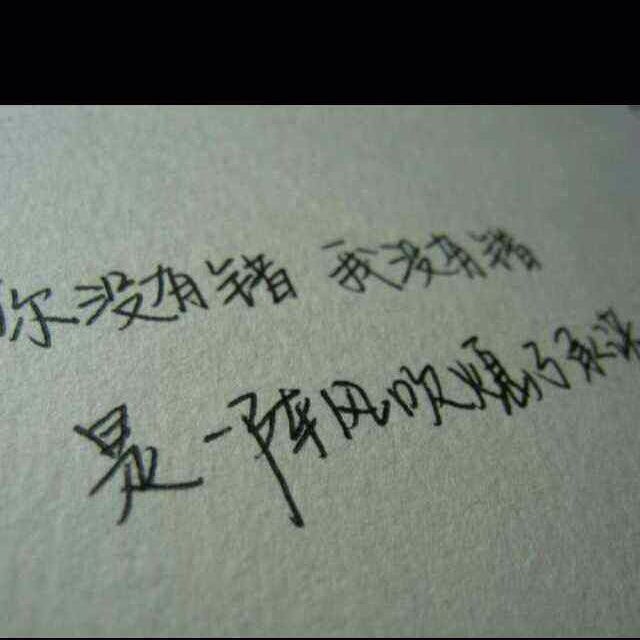 你没有错 我没有错
是一阵风吹熄了承